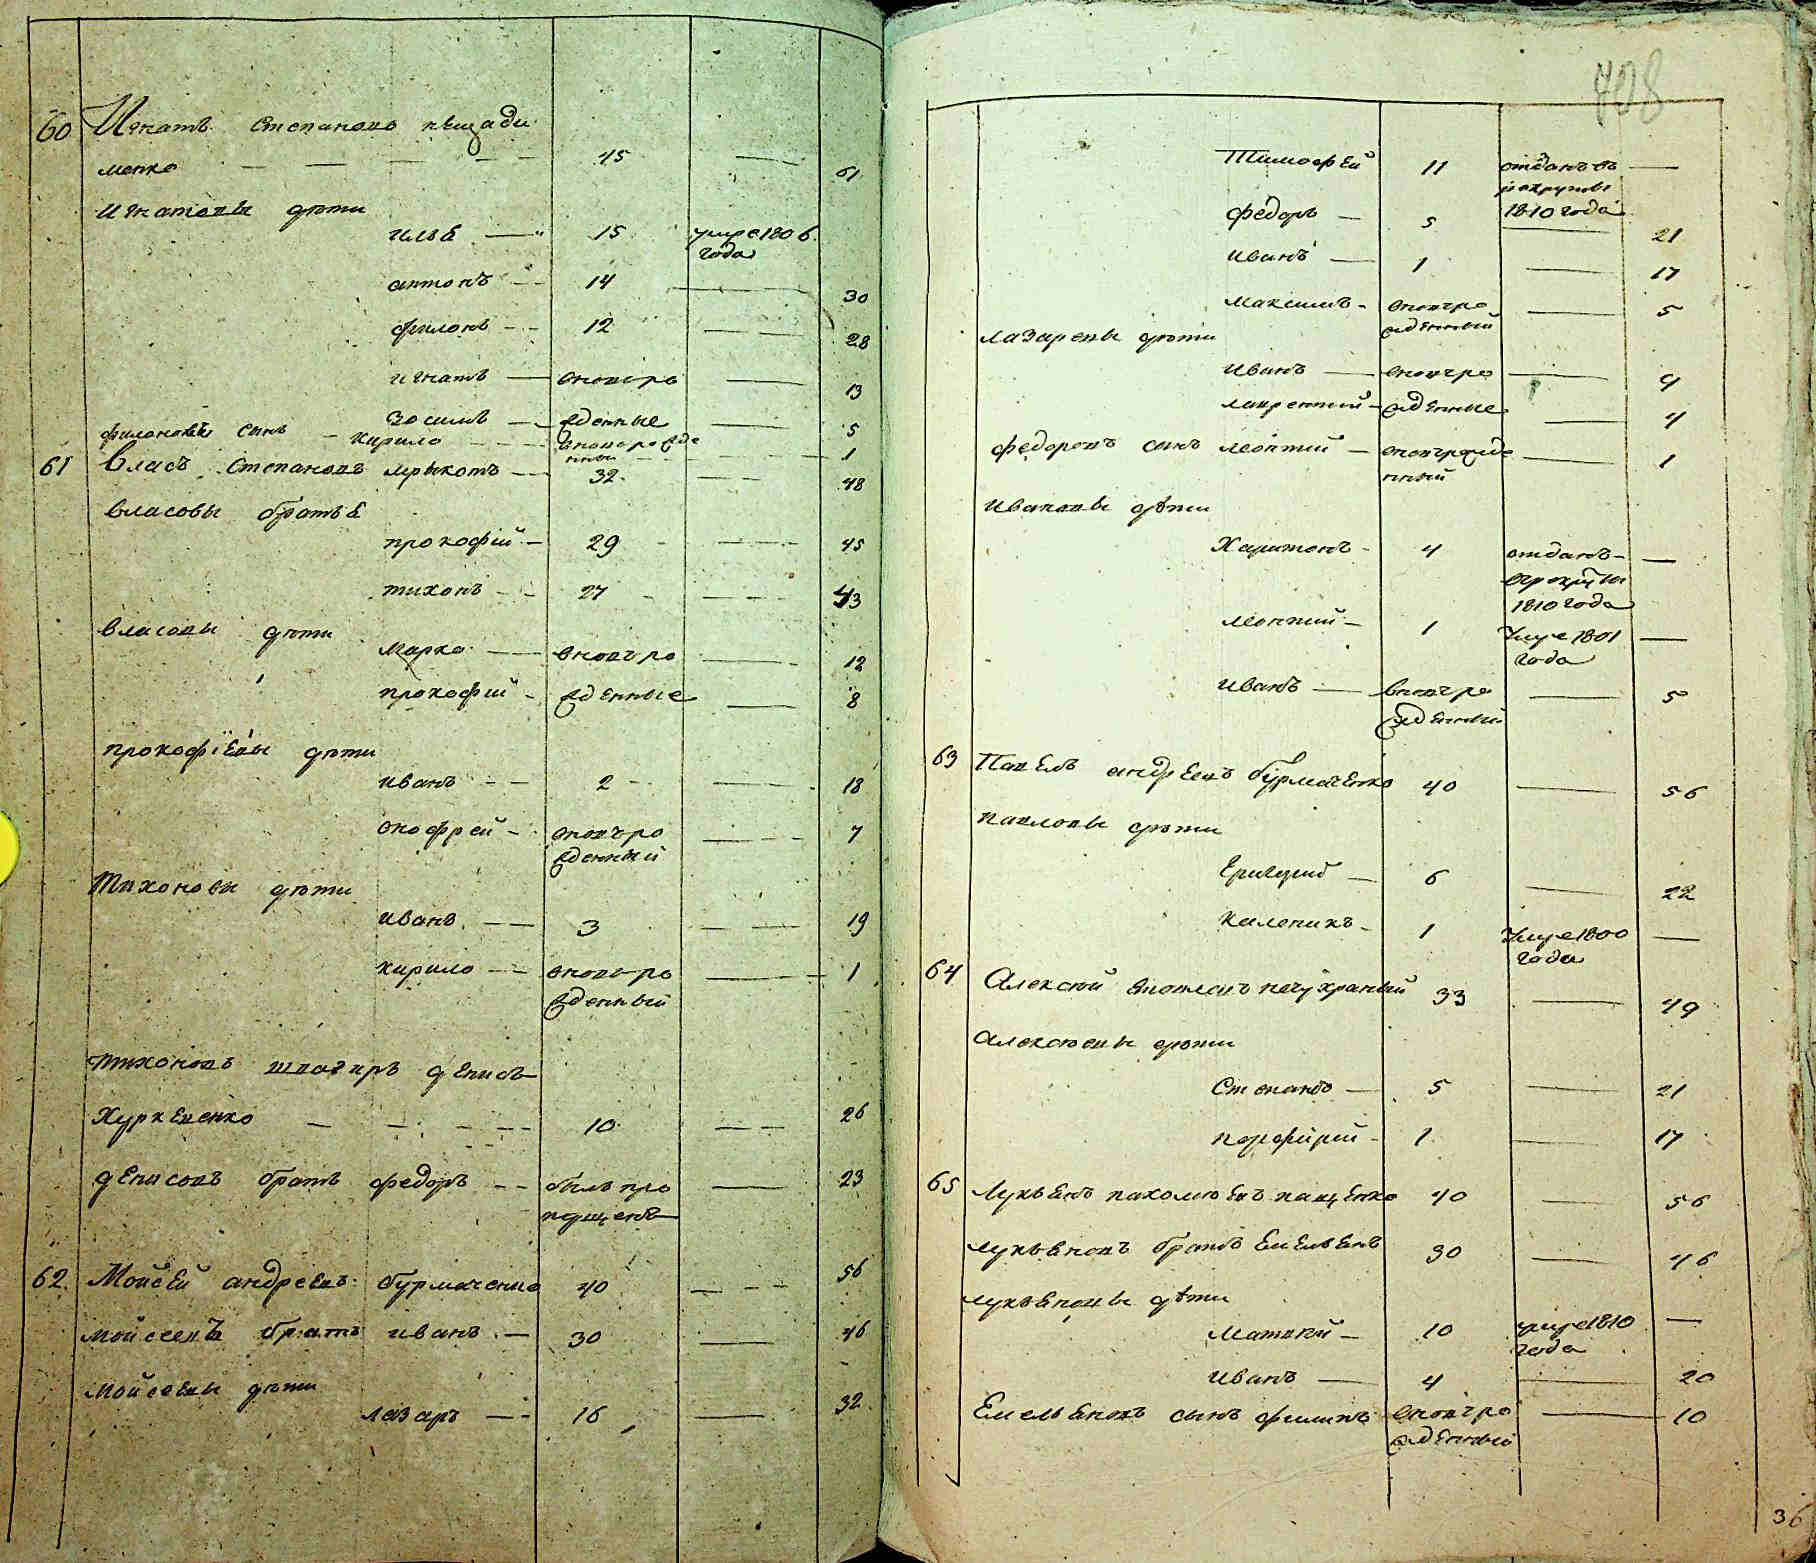 60 Игнатъ Степановъ пещади
менко — — — — 45 — 61
Игнатовы дѣти
илья — 15 умре 1806
года
антонъ — 14 — 30
филонъ — 12 — 28
игнатъ — вновьро — 13
зосимъ — жденные — 5
филоновъ сынъ — кирило — вновьрожде — 1
нный
61 Власъ Степановъ мрыхотъ — 32 — 48
власовы братья
прокофій — 29 — 45
тихонъ — 27 — 43
власовы дѣти
Марко — вновьро — 12
прокофій — жденные — 8
прокофіевы дѣти
иванъ — 2 — 18
онофрей — вновьро — 7
жденный
Тихоновы дѣти
иванъ — 3 — 19
кирило — вновьро — 1
жденный
тихоновъ швагиръ денисъ
Хуркевенко — — — 10 — 26
денисовъ братъ федоръ — былъ про — 23
пущенъ
62 Мойсей андреевъ бурмаченко 40 — 56
мойсеевъ братъ иванъ — 30 — 46
мойсеевы дѣти
лазаръ — 16 — 32
708
Тимофей 11 отданъ въ —
рекруты
1810 года
федоръ — 5 — 21
иванъ — 1 — 17
максимъ — вновьро — 5
жденный
лазаревы дѣти
иванъ — вновьро — 9
лаврентий — жденные — 4
федоровъ сынъ леонтий — вновърожде — 1
нный
ивановы дѣти
Харитонъ — 4 отданъ —
врекруты
1810 года
леонтий — 1 Умре 1801 —
года
иванъ — вновьро — 5
жденный
63 Павелъ андреевъ бурмаченко 40 — 56
павловы дѣти
Григорий — 6 — 22
каленикъ — 1 Умре 1800 —
года
64 Алексей 33 — 49
алексѣевы дѣти
Степанъ — 5 — 21
порфирий — 1 — 17
65 Лукьянъ пахомѣевъ пащенко 40 — 56
лукьяновъ братъ Емельянъ 30 — 46
лукьяновы дѣти
Матвѣй — 10 умре 1810 —
года
иванъ — 4 — 20
Емельяновъ сынъ филипъ вновьро — 10
жденный
36